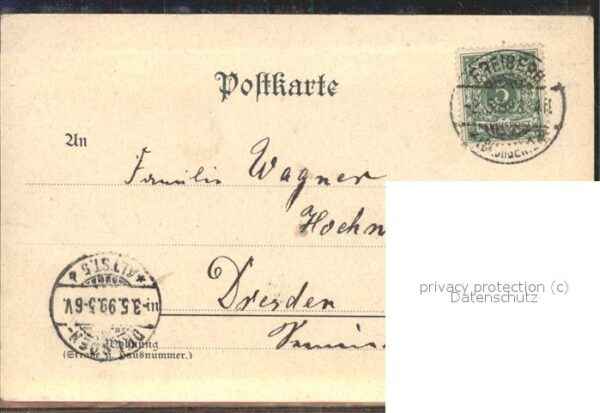 Postkarte
FREIBERG
5
An
Familie Wagner
Hochn
privacy protection (c)
Datenschutz
ALTST. 5
3.5.99.5-6V.
Dresden
Wohnung
(Straße u. Hausnummer.)